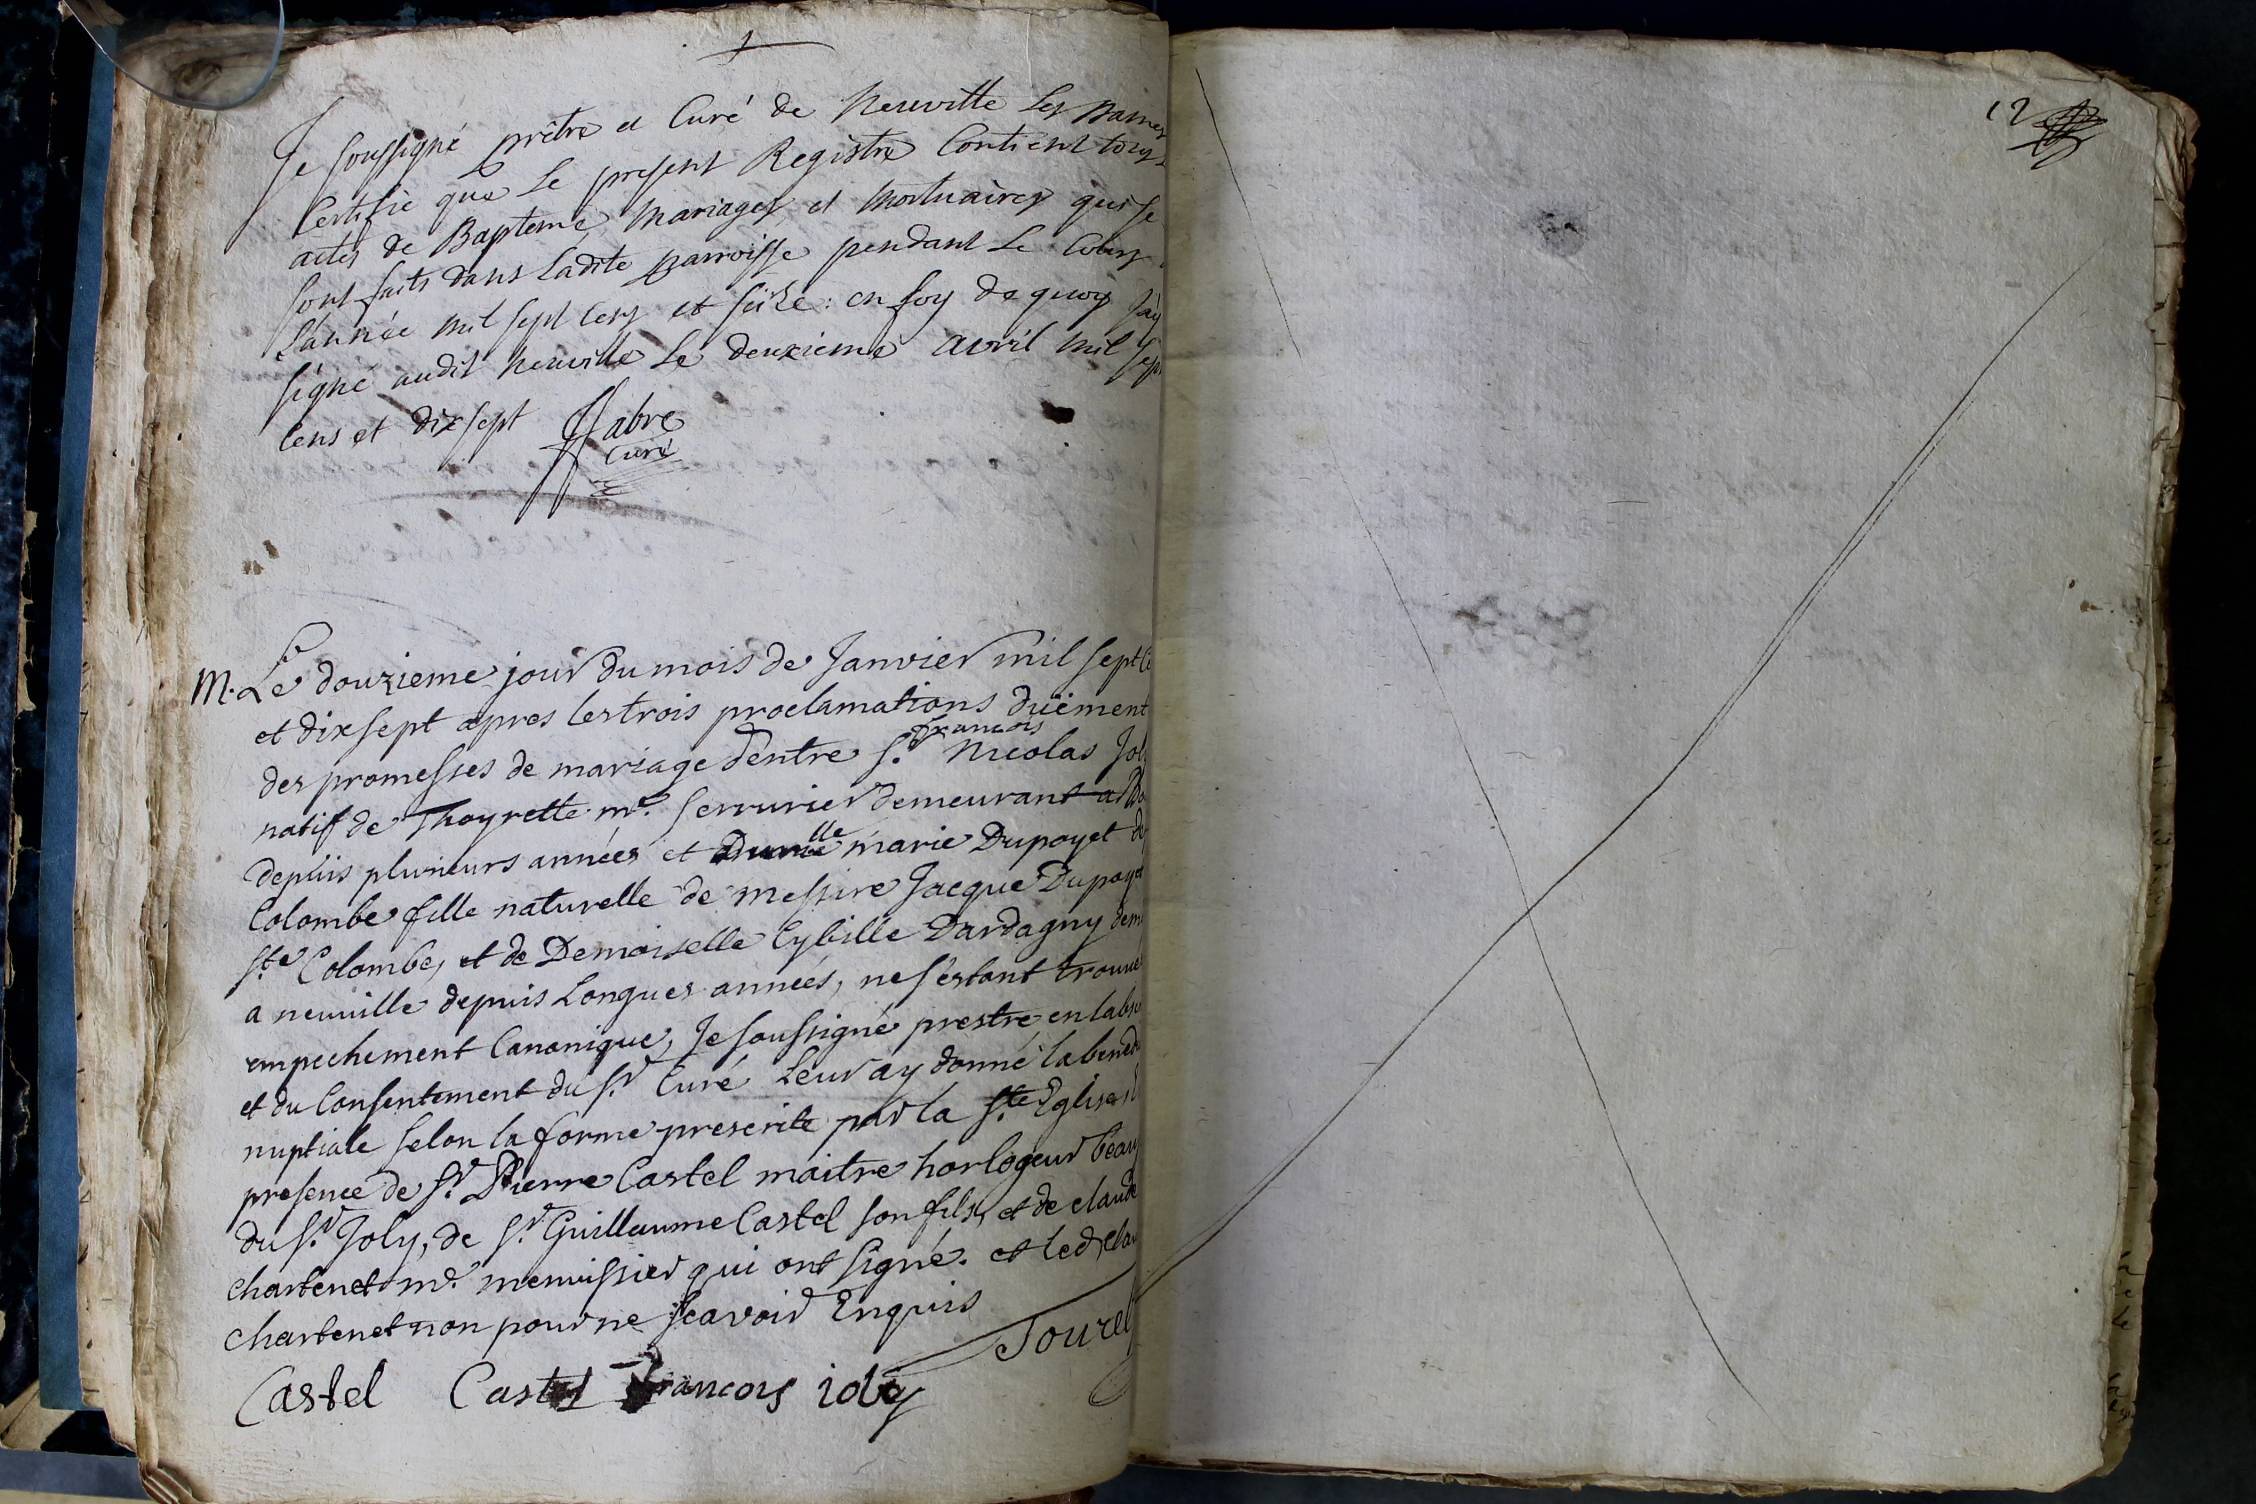 Je soussigné prêtre et Curé de Neuville Les Dames
Certifie que Le present Registre Contient tous
actes de Bapteme, Mariages et Mortuaires qui se
sont faits dans Ladite parroisse pendant Le Cours
L'année mil sept cens et seize : en foy de quoy J'ay
signé audit Neuville Le deuxieme avril mil sept
cens et dix sept
Fabre
Curé
M. Le douzieme jour du mois de Janvier mil sept ce
et dix sept apres les trois proclamations duëment
des promesses de mariage d'entre Sr. françois Nicolas Joly
natif de Thoyrette me. serrurier demeurant a
depuis plusieurs années et lle marie Dupoyet de
Colombe fille naturelle de messire Jacque Dupoyet
Ste Colombe, et de Demoiselle Cybille Dardagny dem
a neuville depuis Longues années, ne s'estant trouvé
empechement Canonique, Je soussigné prestre en labs
et du Consentement du Sr. Curé Leur ay donné la bened
nuptiale selon la forme prescrite par la Ste Eglise
presence de Sr. Pierre Castel maitre horlogeur beau
du Sr. Joly, de Sr. Guillaume Castel son fils, et de claude
chartenet me. menuissier qui ont signé. et led clau
chartenet non pour ne sçavoir Enquis
Castel Castel francois ioly